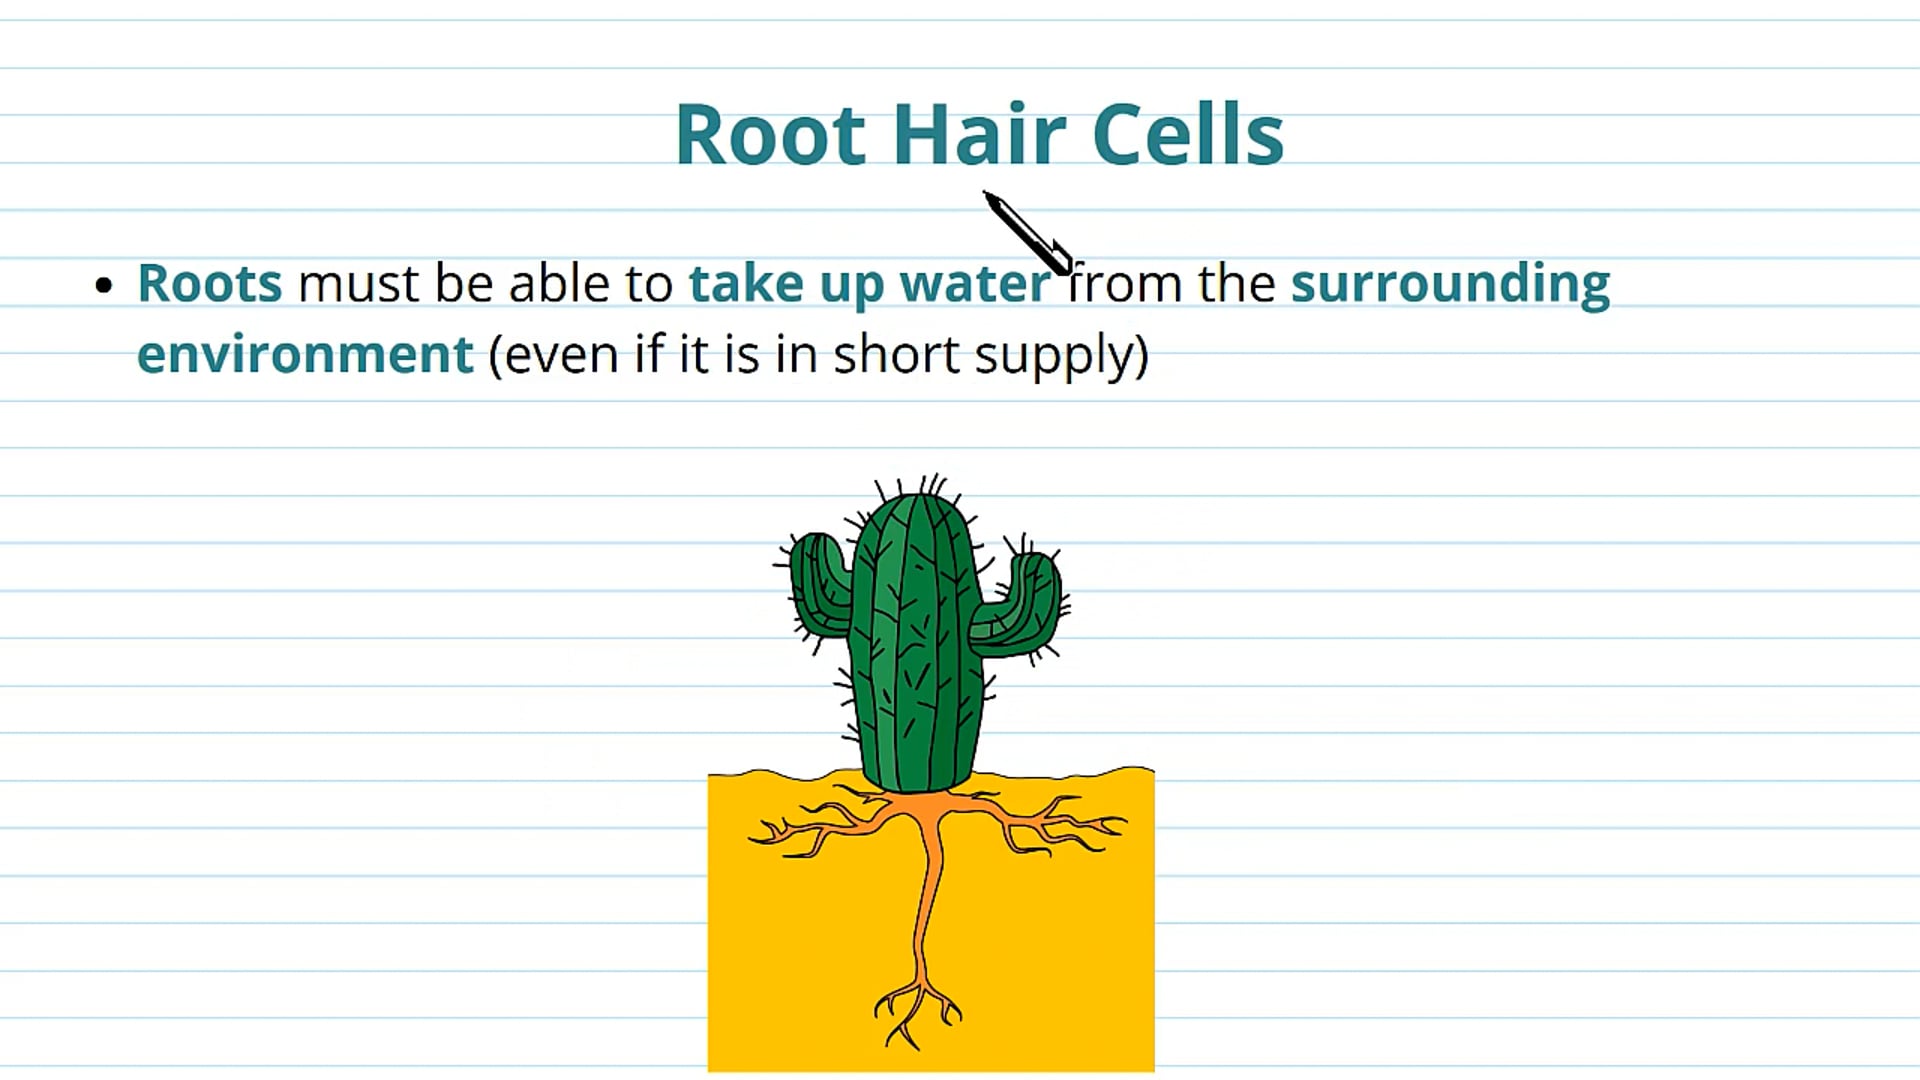 Root Hair Cells
• Roots must be able to take up water from the surrounding
environment (even if it is in short supply)